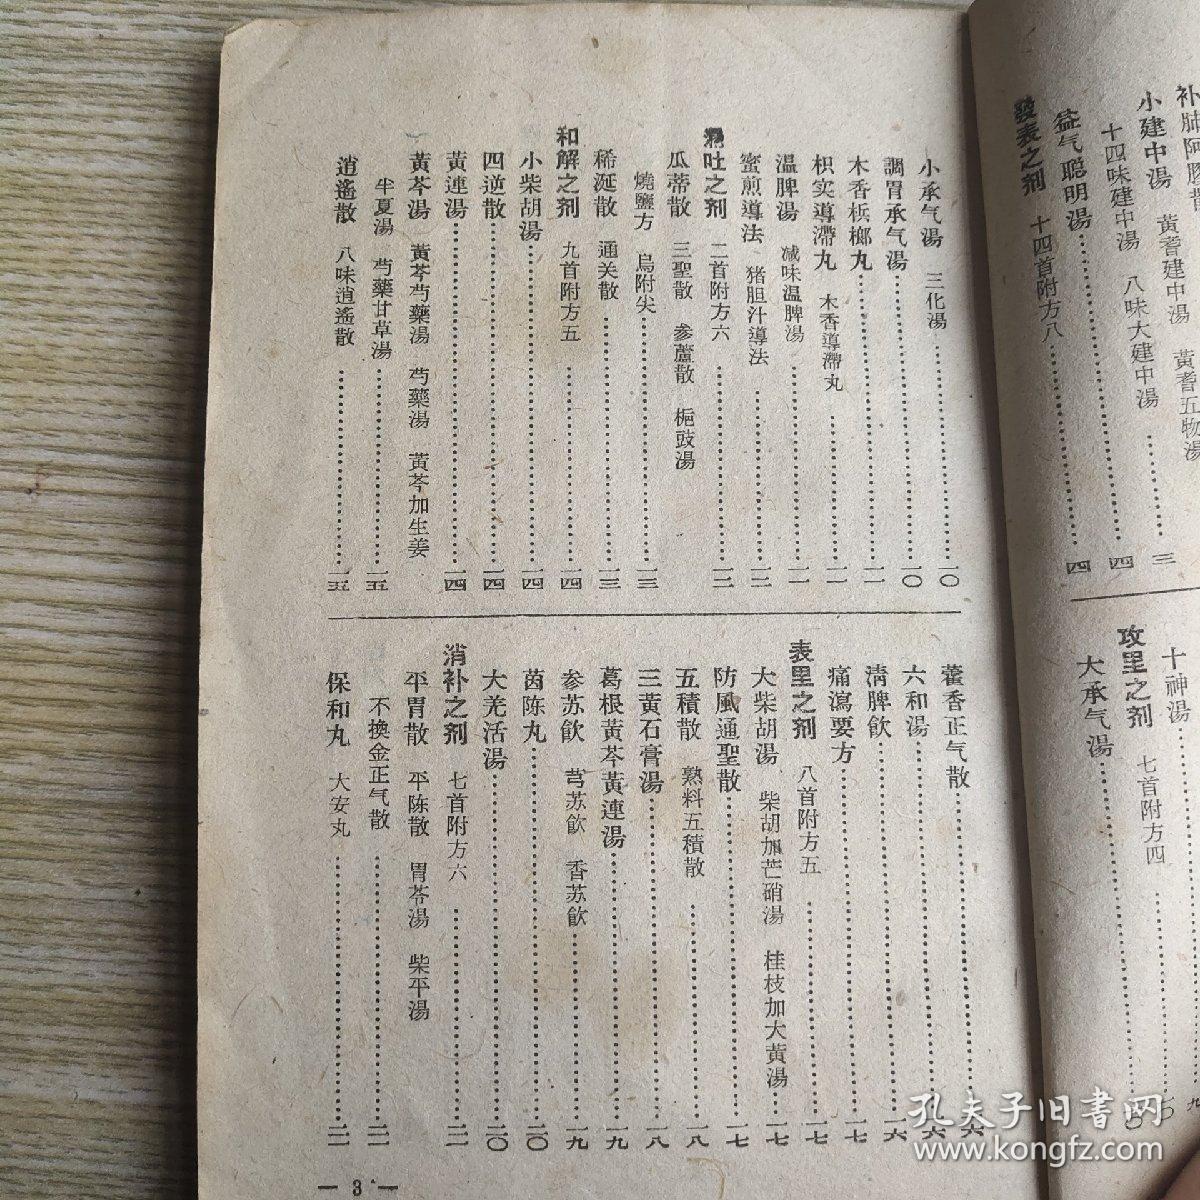 补肺阿膠散
小建中湯　黃耆建中湯　黃耆五物湯
十四味建中湯　八味大建中湯……三
益气聪明湯……四
發表之剂　十四首附方八……四
十神湯……九
攻里之剂　七首附方四……一〇
大承气湯
小承气湯　三化湯……一〇
調胃承气湯……一〇
木香梹榔丸……一一
枳实導滯丸　木香導滯丸……一一
温脾湯　减味温脾湯……一一
蜜煎導法　猪胆汁導法……一二
涌吐之剂　二首附方六……一二
瓜蒂散　三聖散　参蘆散　梔豉湯
燒鹽方　烏附尖……一三
稀涎散　通关散……一三
和解之剂　九首附方五……一四
小柴胡湯……一四
四逆散……一四
黃連湯……一四
黃芩湯　黃芩芍藥湯　芍藥湯　黃芩加生姜
半夏湯　芍藥甘草湯……一五
逍遙散　八味逍遙散……一五
藿香正气散……一六
六和湯……一六
清脾飲……一六
痛瀉要方……一七
表里之剂　八首附方五……一七
大柴胡湯　柴胡加芒硝湯　桂枝加大黃湯……一七
防風通聖散……一七
五積散　熟料五積散……一八
三黃石膏湯……一八
葛根黃芩黃連湯……一九
参苏飲　芎苏飲　香苏飲……一九
茵陈丸……二〇
大羌活湯……二〇
消补之剂　七首附方六……二一
平胃散　平陈散　胃苓湯　柴平湯
不換金正气散……二一
保和丸　大安丸……二一
— 3 —
孔夫子旧書网
www.kongfz.com